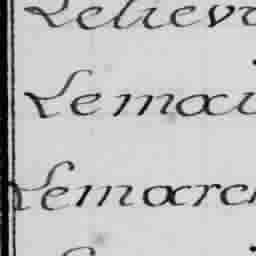 Lelievr
Lemai
Lemarch